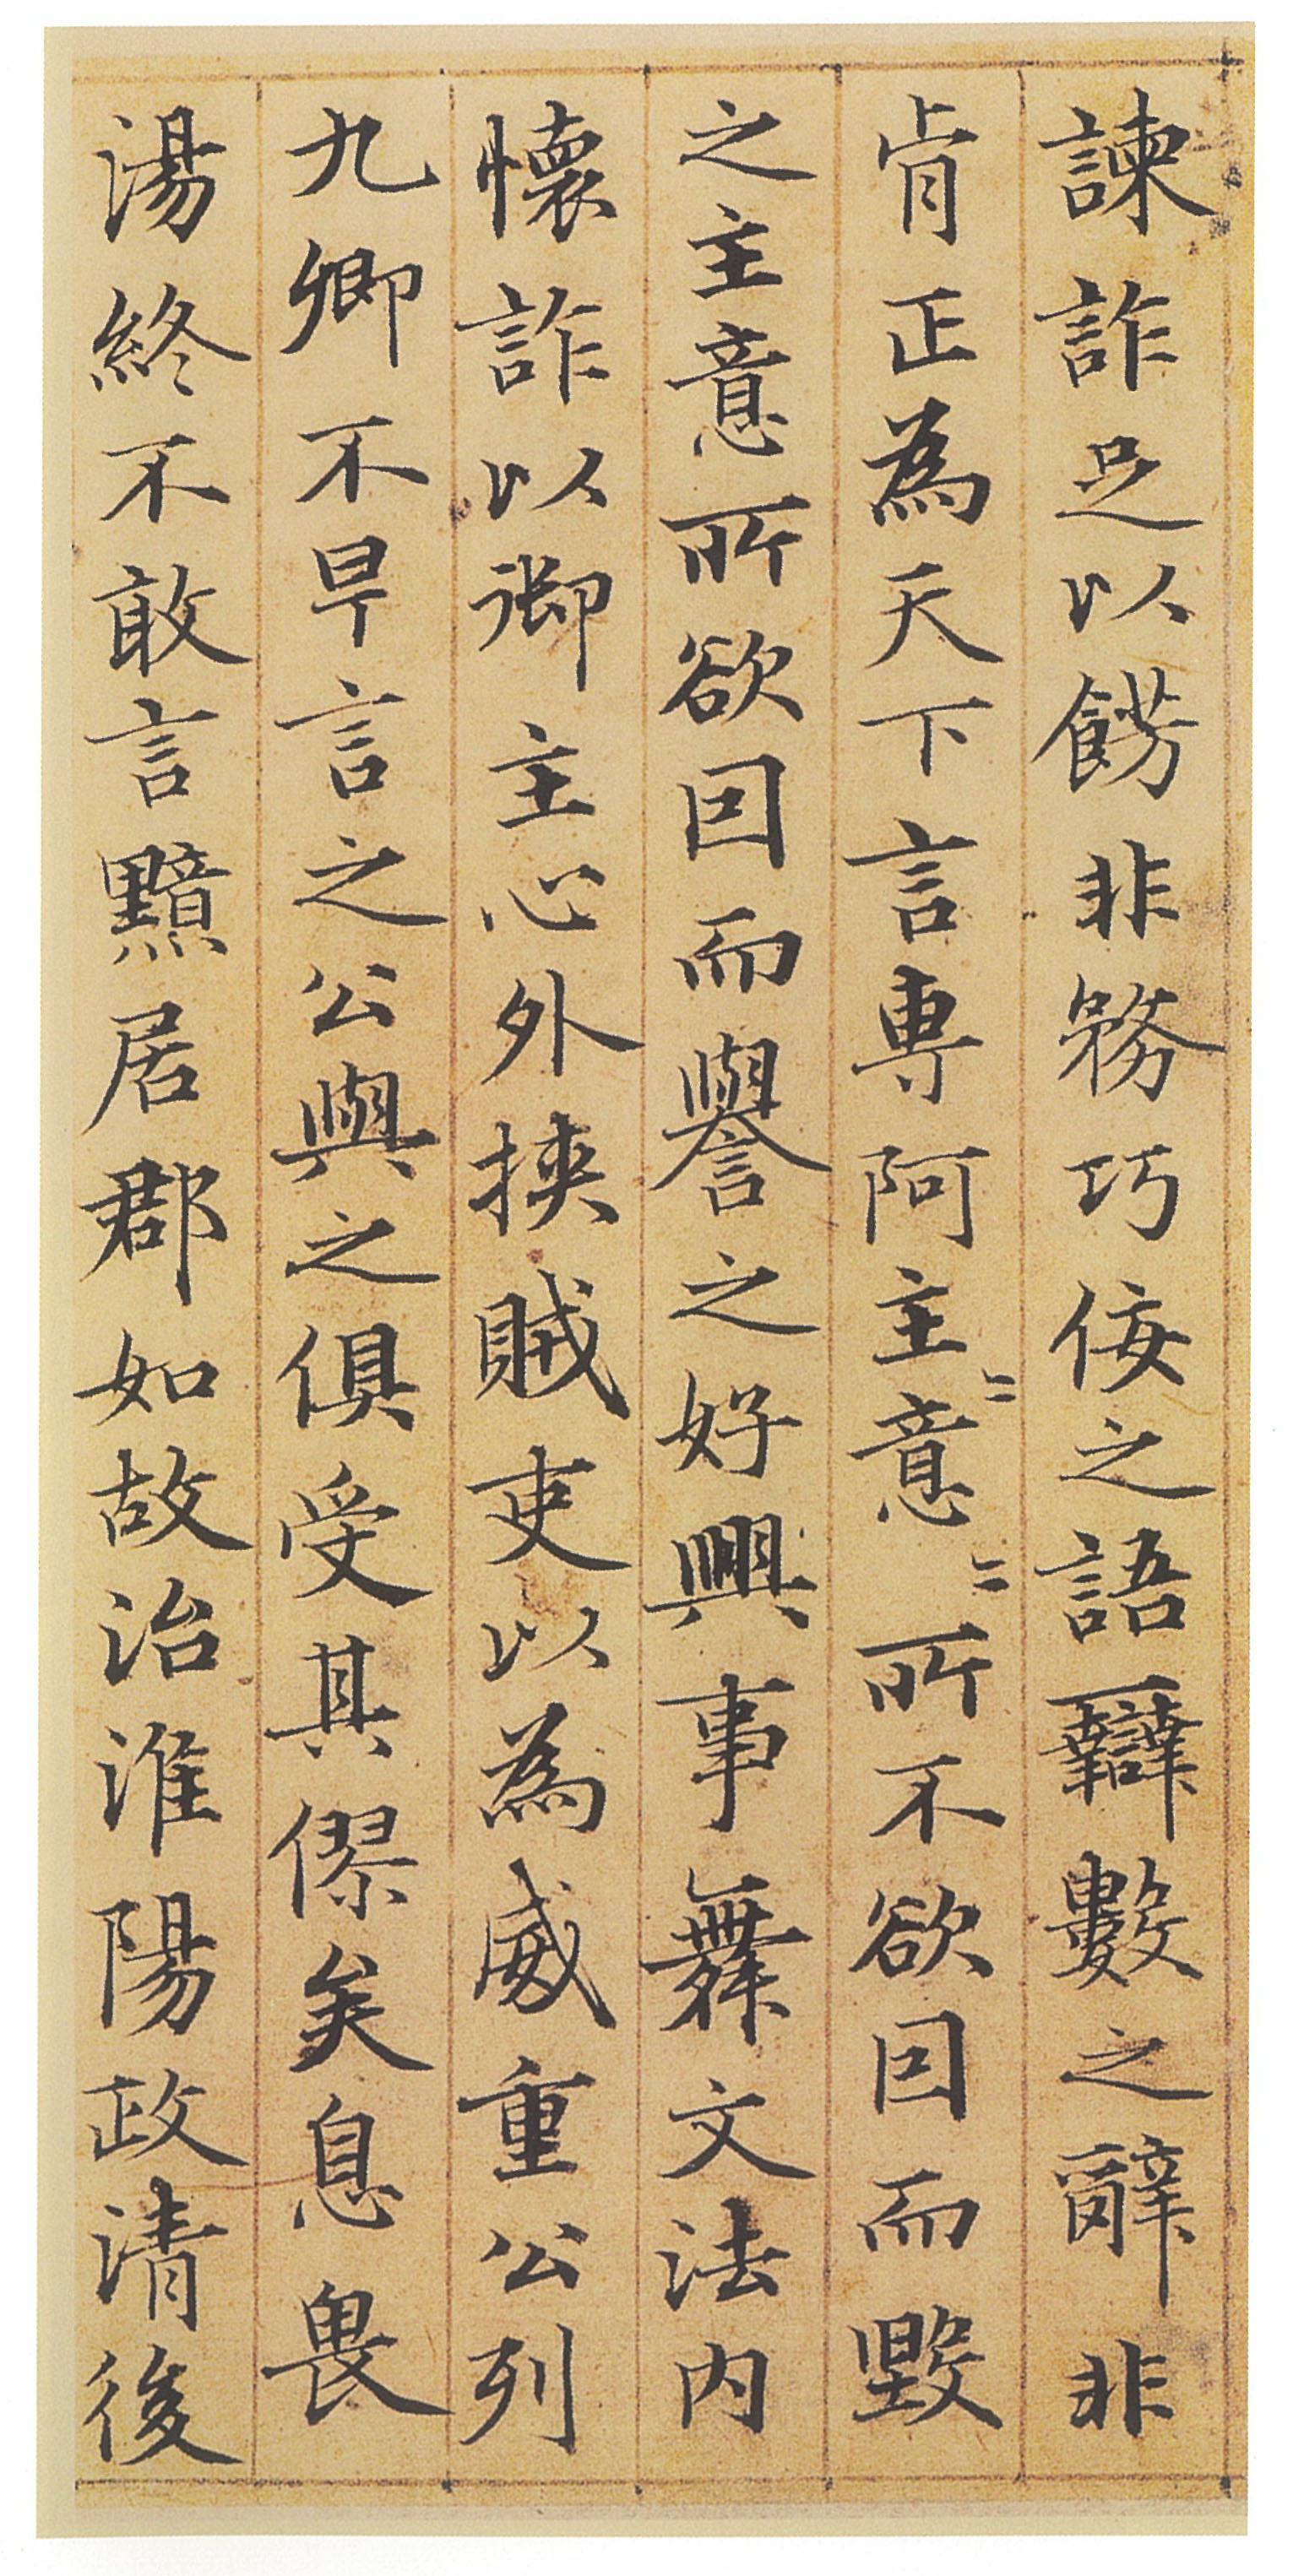 諫詐足以餝非務巧佞之語辯數之辭非
肯正為天下言專阿主意〻所不欲因而毀
之主意所欲因而譽之好興事舞文法内
懷詐以御主心外挾賊吏以為威重公列
九卿不早言之公與之俱受其僇矣息畏
湯終不敢言黯居郡如故治淮陽政清後